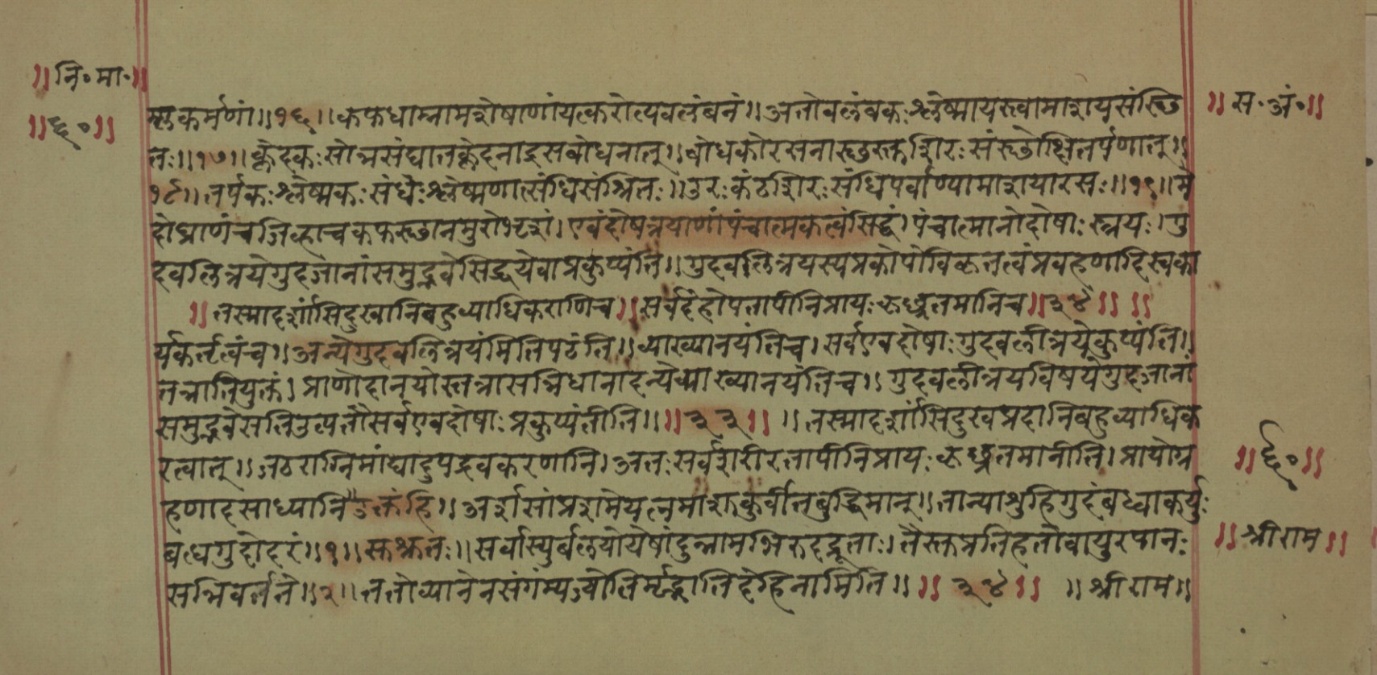 ॥नि॰मा॰॥
॥६०॥
॥स॰अं॰॥
म्लकर्मणां॥१६॥कफधाम्नामशेषाणांयत्करोत्यवलंबनं॥अतोवलंबकःश्लेष्मायस्त्वामाशयसंस्थि
तः॥१७॥क्लेदकःसोन्नसंघातक्लेदनाद्रसबोधनात्॥बोधकोरसनास्थस्तुशिरःसंस्थोक्षितर्पणात्॥
१८॥तर्पकःश्लेष्मकःसंधेःश्लेष्मणात्संधिसंश्रितः॥उरःकंठशिरःसंधिपर्वाण्यामाशयोरसः॥१९॥मे
दोघ्राणंचजिव्हाचकफस्थानमुरोभृशं।एवंदोषत्रयाणांपंचात्मकत्वंसिद्धं।पंचात्मानोदोषाःस्त्रयः।गु
दवलित्रयेगुदजानांसमुद्भवेसिद्धयेवाप्रकुप्यंति॥गुदवलित्रयस्यप्रकोपोविकृतत्वंप्रवहणादिस्वका
॥तस्मादर्शांसिदुःखानिबहुव्याधिकराणिच॥सर्वदेहोपतापीनिप्रायःकृछ्रतमानिच॥३४॥॥
र्यकर्तृत्वंच॥अन्येगुदवलित्रयंमितिपठंति॥व्याख्यानयंतिच।सर्वएवदोषाःगुदवलीत्रयेकुप्यंति॥
तन्नातियुक्तं।प्राणोदानयोस्तत्रासन्निधानादन्येव्याख्यानयंतिच॥गुदवलीत्रयविषयेगुदजानां
समुद्भवेसतिउत्पत्तौसर्वएवदोषाःप्रकुप्यंतीति॥॥३३॥॥तस्मादर्शांसिदुःखप्रदानिबहुव्याधिक
रत्वात्॥जठराग्निमांद्याद्युपद्रवकरणानि।अतःसर्वशरीरतापीनिप्रायःकृछ्रतमानीति।प्रायोग्र
हणादसाध्यानिउक्तंहि॥अर्शसांप्रशमेयत्नमाशुकुर्वीतबुद्धिमान्॥तान्याशुहिगुदंबध्वाकर्युः
बत्धगुदोदरं॥१॥सुश्रुतः॥सर्वास्युर्बलयोयेषांदुन्नामभिरुदद्रूताः।तैस्तुप्रतिहतोवायुरपानः
सन्निवर्तते॥२॥ततोव्यानेनसंगम्यज्योतिर्मृद्गातिदेहिनामिति॥॥३४॥॥श्रीराम॥
॥६०॥
॥श्रीराम॥